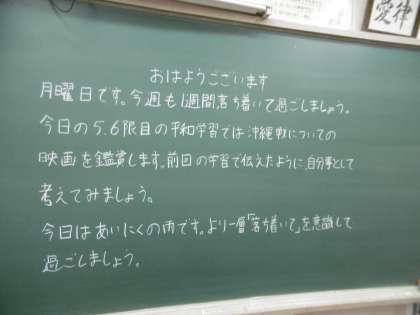 愛律
おはようございます
月曜日です。今週も1週間落ち着いて過ごしましょう。
今日の5.6限目の平和学習では沖縄戦についての
映画を鑑賞します。前回の学習で伝えたように、自分事として
考えてみましょう。
今日はあいにくの雨です。より一層「落ち着いて」を意識して
過ごしましょう。